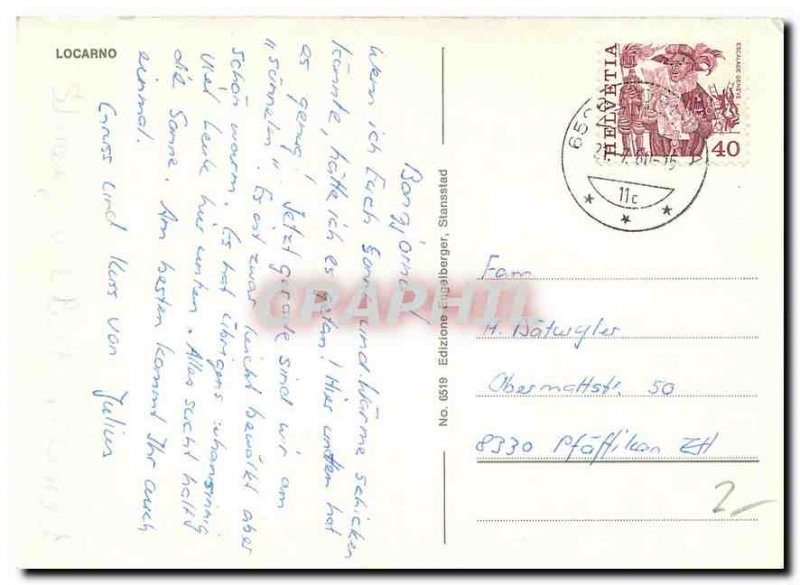 LOCARNO
Bongiorno!
Wenn ich Euch Sonne und Wärme schicken
könnte, hätte ich es getan! Hier unten hat
es genug! Jetzt gerade sind wir am
"sünnelen". Es ist zwar leicht bewölkt aber
schön warm. Es hat übrigens wahnsinnig
viel Leute hier unten. Alles sucht halt
die Sonne. Am besten kommt Ihr auch
einmal.
Gruss und Kuss von Julius
No. 6519 Edizione Engelberger, Stansstad
HELVETIA
ESCALADE GENÈVE
40
11c
Fam
H. Bätwyler
Obermattstr. 50
8330 Pfäffikon ZH
2-
CRAPHTI